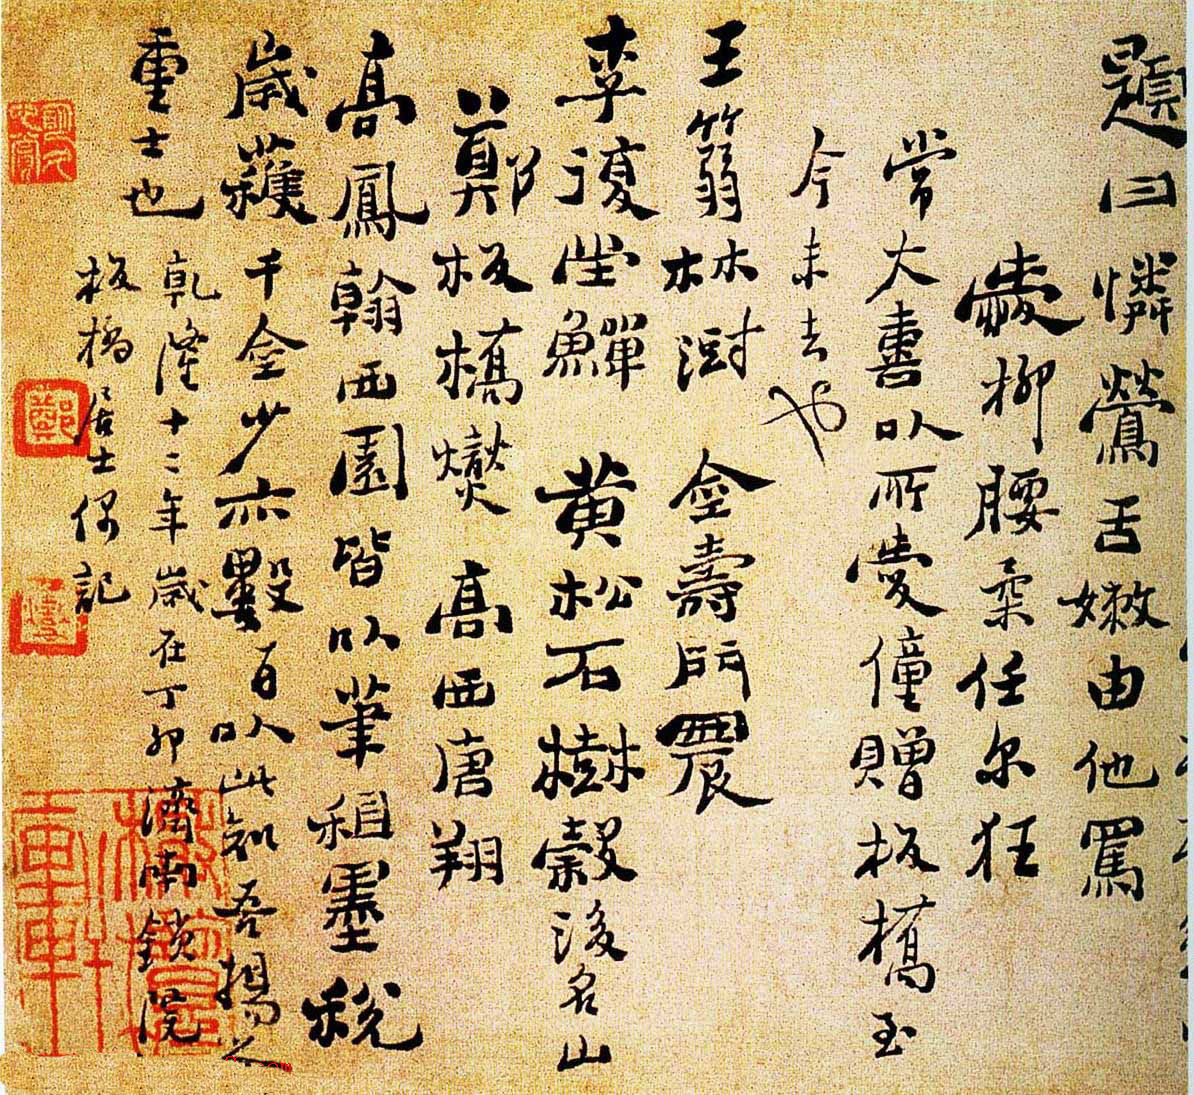 題曰憐鶯舌嫩由他罵
愛柳腰柔任尔狂
常大喜以所愛僮贈板橋至
今未去也
王篛林澍 金壽門農
李復堂鱓 黃松石樹穀後名山
鄭板橋燮 高西唐翔
高鳳翰西園皆以筆租墨稅
歲獲千金少亦數百以此知吾揚之
重士也
乾隆十二年歲在丁卯濟南鎖院
板橋居士偶記
鄭